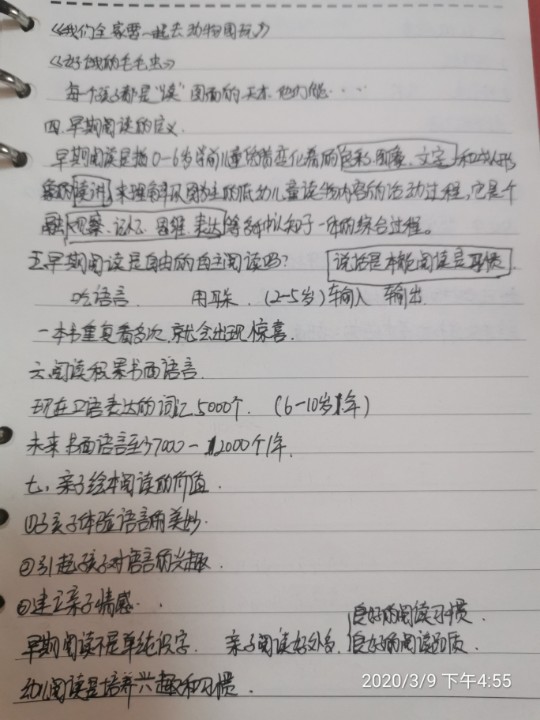 《我们全家要一起去动物园玩》
《好饿的毛毛虫》
每个孩子都是"读"图画的天才, 他们能……
四、早期阅读的定义.
早期阅读是指0-6岁学前儿童凭借变化着的色彩、图象、文字和成人形
象的读讲, 来理解以图为主的低幼儿童读物内容的活动过程, 它是个
融观察、记忆、思维、表达等多种认知于一体的综合过程。
五、早期阅读是自由的自主阅读吗? 说话是本能 阅读是习惯
吃语言 用耳朵 (2-5岁) 输入 输出.
一本书重复看多次, 就会出现惊喜.
六、阅读积累书面语言.
现在口语表达的词汇5000个. (6-10岁1年)
未来书面语言至少7000-12000个1年.
七、亲子绘本阅读的价值.
①与孩子体验语言的美妙.
②引起孩子对语言的兴趣.
③建立亲子情感.
早期阅读不是单纯识字. 亲子阅读好处多, 良好的阅读习惯.
良好的阅读品质.
幼儿阅读是培养兴趣和习惯.
2020/3/9 下午4:55